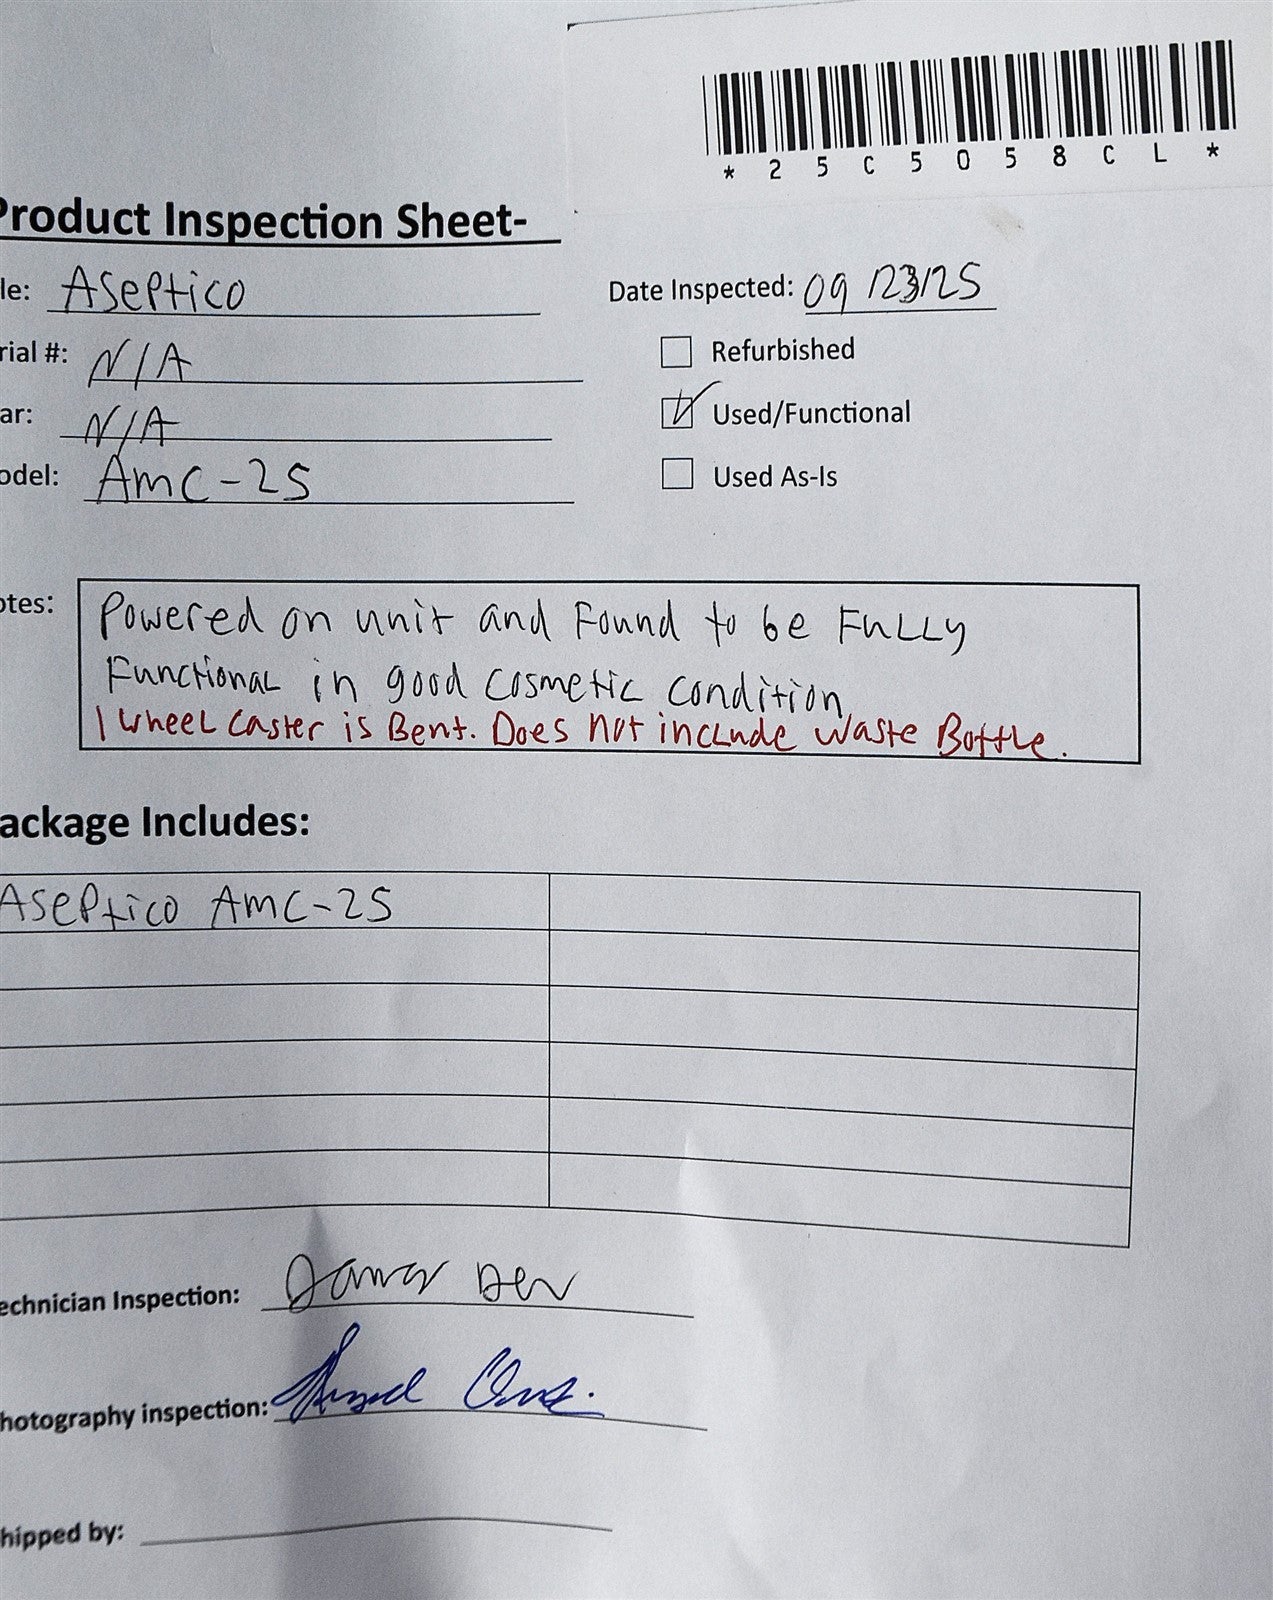 *25C5058CL*
Product Inspection Sheet-
le: Aseptico
Date Inspected: 09/23/25
rial #: N/A
Refurbished
ar: N/A
Used/Functional
odel: AMC-25
Used As-Is
otes: Powered on unit and Found to be Fully
Functional in good cosmetic condition
1 wheel caster is Bent. Does not include waste Bottle.
ackage Includes:
Aseptico AMC-25
echnician Inspection:
hotography inspection:
hipped by: